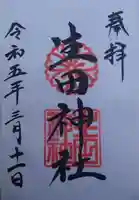 奉拝
生田神社
令和五年三月十一日